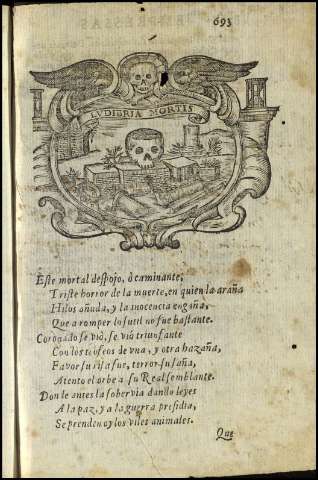 693
LVDIBRIA MORTIS
Este mortal despojo, ò caminante,
Triste horror de la muerte, en quien la araña
Hilos añuda, y la inocencia engaña,
Que a romper lo sutil no fue bastante.
Coronado se viò, se viò triunfante
Con los trofeos de vna, y otra hazaña,
Favor su risa fue, terror su saña,
Atento el orbe a su Real semblante.
Donde antes la sobervia dando leyes
A la paz, y a la guerra presidia,
Se prenden oy los viles animales.
Que